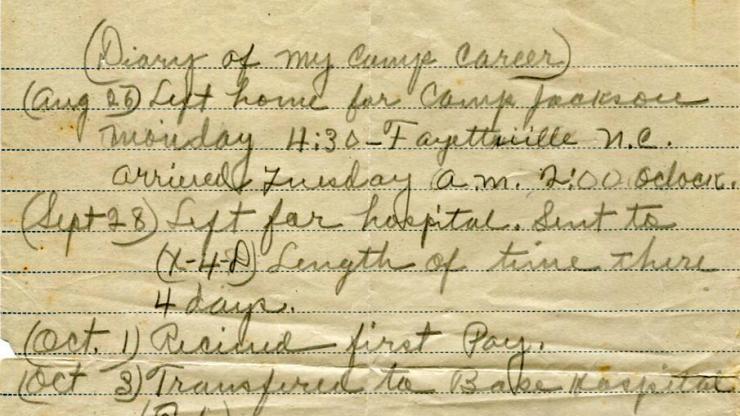 (Diary of my Camp Career)
(Aug 26) Left home for Camp Jackson
Monday 4:30 - Fayettville N.C.
arrieved Tuesday a.m. 2:00 oclock.
(Sept 28) Left for hospital. Sent to
(X-4-D) Length of time there
4 days.
(Oct. 1) Recieved first Pay.
(Oct 3) Transfered to Base Hospital